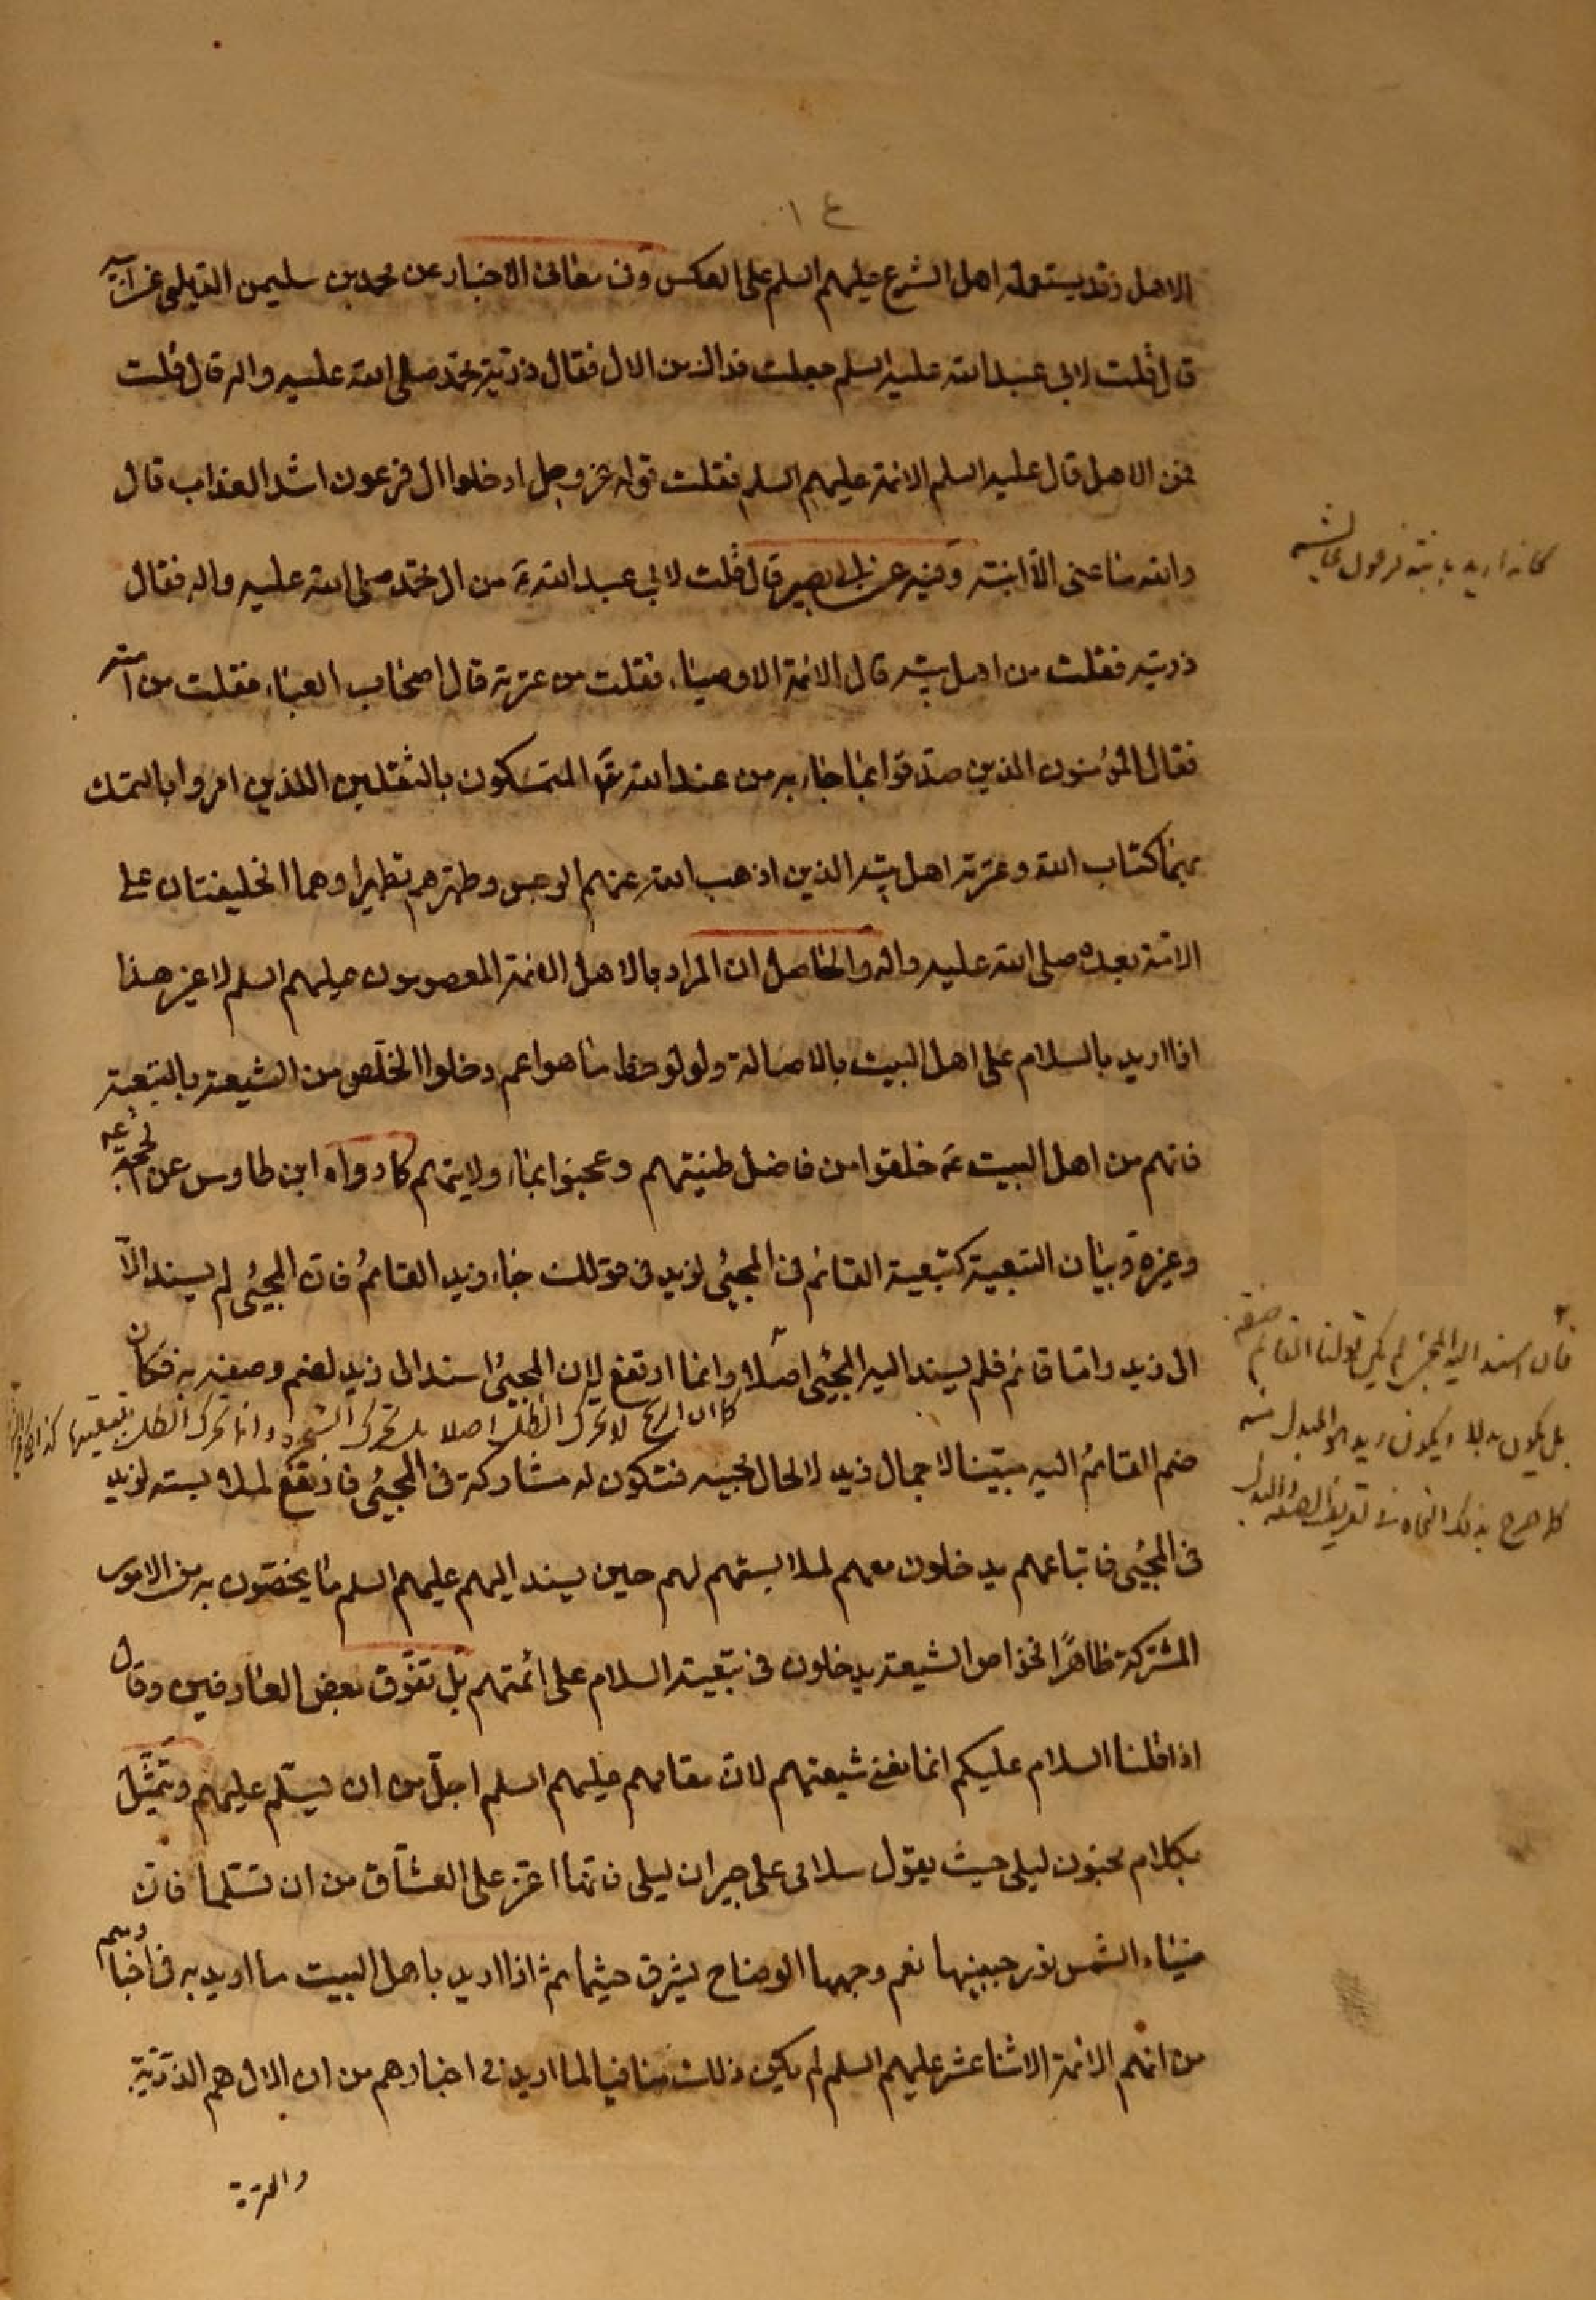 ١٤
الاهل وقد يستعمله اهل الشرع عليهم السلم على العكس وفى معانى الاخبار عن محمد بن سليمن الديلمى عن ابيه
قال قلت لابى عبد الله عليه السلم جعلت فداك من الال فقال ذرية محمد صلى الله عليه واله قال قلت
فمن الاهل قال عليه السلم الائمة عليهم السلم فقلت قوله عز وجل ادخلوا ال فرعون اشد العذاب قال
والله ما عنى الا ابنته وفيه عن ابى بصير قال قلت لابى عبد الله ع من ال محمد صلى الله عليه واله فقال
ذريته فقلت من اهل بيته قال الائمة الاوصياء فقلت من عترته قال اصحاب العباء فقلت من امته
فقال المؤمنون الذين صدقوا بما جاء به من عند الله المتمسكون بالثقلين اللذين امروا بالتمسك
بهما كتاب الله وعترته اهل بيته الذين اذهب الله عنهم الرجس وطهرهم تطهيرا وهما الخليفتان على
الامة بعده صلى الله عليه واله والحاصل ان المراد بالاهل الائمة المعصومون عليهم السلم لا غير هذا
اذا اريد بالسلام على اهل البيت بالاصالة ولو لوحظ ما هو اعم دخلوا الخلّص من الشيعة بالتبعية
فانهم من اهل البيت ع خلقوا من فاضل طينتهم وعجنوا بماء ولايتهم كما رواه ابن طاوس عن الحجة ع
وغيره وبيان التبعية كتبعية القائم فى المجيئ لزيد فى قولك جاء زيد القائمُ فان المجيئ لم يسند الّا
الى زيد واما قائم فلم يسند اليه المجيئ اصلا وانما ارتفع لان المجيئ اسند الى زيد لضم وصفه به فكان
كما ان الريح لا تحرك الظل اصلا بل تحرك الشجرة وانما تحرك الظل بتبعيتها
ضم القائمُ اليه مبيّنا لاجمال زيد لا لحال مجيئه فتكون له مشاركة فى المجيئ فارتفع لملابسته لزيد
فى المجيئ فاتباعهم يدخلون معهم لملابستهم لهم حين يسند اليهم عليهم السلم ما يختصون به من الامور
المشتركة ظاهرًا فخواص الشيعة يدخلون فى تبعية السلام على ائمتهم بل تفوّق بعض العارفين وقال
اذا قلنا السلام عليكم انما نعنى شيعتهم لان مقامهم عليهم السلم اجلّ من ان يسلّم عليهم وتمثّل
بكلام مجنون ليلى حيث يقول سلامى على جيران ليلى فانها اعز على العشاق من ان تسلّما فان
ضياء الشمس نور جبينها نعم وجهها الوضاح يشرق حيثما ثم اذا اريد باهل البيت ما اريد به فى اخبارهم
من انهم الائمة الاثنا عشر عليهم السلم لم يكن ذلك منافيا لما اريد فى اخبارهم من ان الال هم الذرّيّة
والعترة
كانه اريد بابنته فرعون
فان اسند اليه المجئ لم يكن قولنا القائم صفة
بل يكون بدلا ويكون زيد هو المبدل منه
كما صرح بذلك النحاة فى تعريف الصفة والبدل